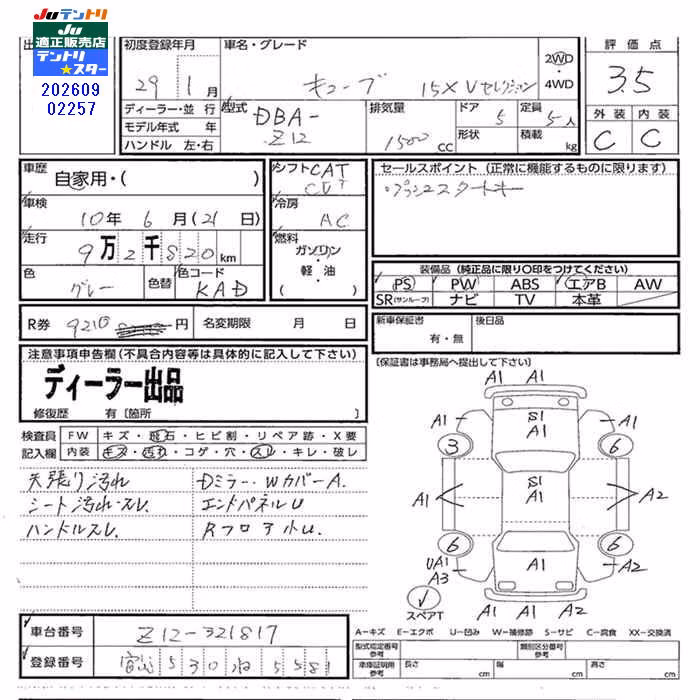 Juテントリ
Ju
適正販売店
テントリ
スター
202609
02257
出
初度登録年月
29 1 月
車名・グレード
キューブ 15X Vセレクション
2WD
・
4WD
評価点
3.5
外装 内装
C C
ディーラー・並行
モデル年式 年
ハンドル 左・右
型式
DBA-
Z12
排気量
1500 cc
ドア 5
形状
定員 5人
積載 kg
車歴
自家用・( )
車検
10年 6月(21日)
走行
9万2千820km
色
グレー
色替
色コード
KAD
シフト CAT
CVT
冷房
AC
燃料
ガソリン・
軽・油
( )
セールスポイント (正常に機能するものに限ります)
・プッシュスタートキー
装備品 (純正品に限り〇印をつけてください)
PS PW ABS エアB AW
SR(サンルーフ) ナビ TV 本革
R券 9210 円
名変期限 月 日
新車保証書
有・無
後日品
注意事項申告欄(不具合内容等は具体的に記入して下さい)
ディーラー出品
修復歴 有〔箇所 〕
〔保証書は事務局へ提出して下さい〕
検査員
記入欄
FW キズ・飛石・ヒビ割・リペア跡・X要
内装 キズ・汚れ・コゲ・穴・スレ・キレ・破レ
天張り汚れ
シート汚れ・スレ
ハンドルスレ
Dミラー・WカバーA
エンドパネルU
Rフロア小U
A1 A1
A1 S1 A1 A1
3 6
A1 S1 A1 A2
6 6
UA1 A3 A1 A2
スペアT
A1 A1 A2
A-キズ E-エクボ U-凹み W-補修跡 S-サビ C-腐食 XX-交換済
型式指定番号
参考
類別区分番号
参考
車庫証明用
参考
長さ cm 幅 cm 高さ cm
車台番号
Z12-321817
登録番号
530 ね 5581